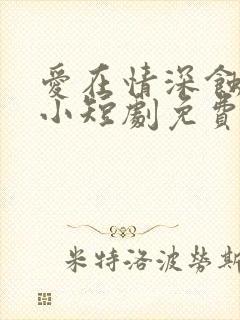 愛在情深
小短劇免費
米特洛波勞斯